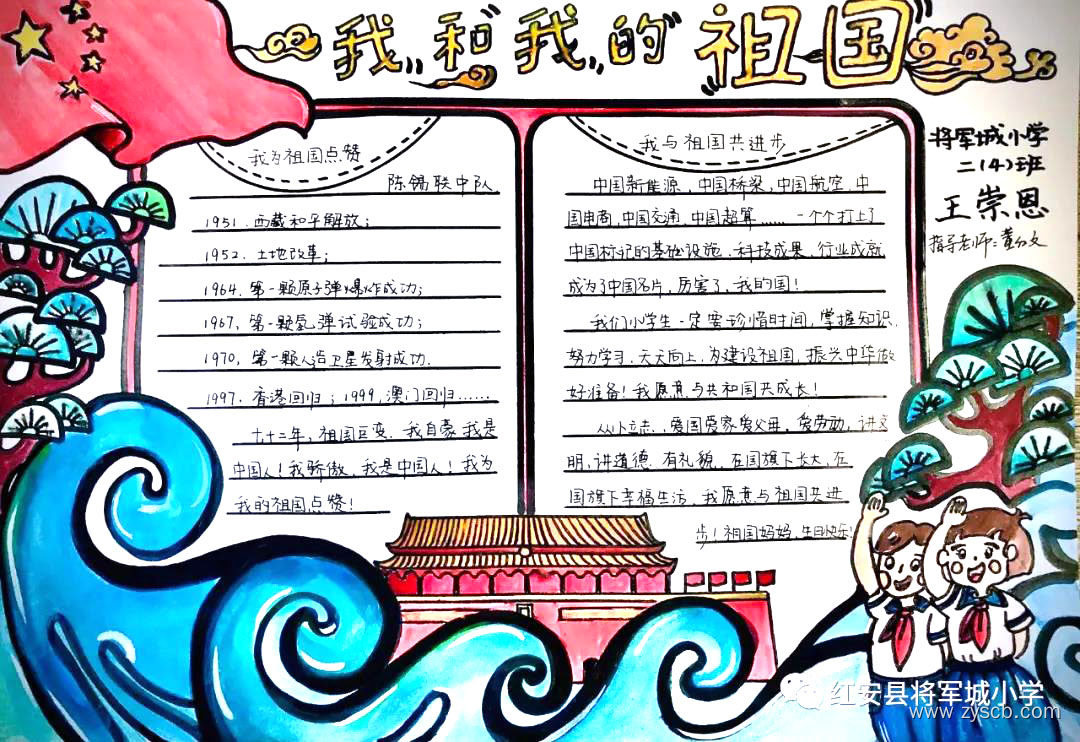 我和我的祖国
将军城小学
二(4)班
王崇恩
指导老师:董
我为祖国点赞
陈锡联中队
1951.西藏和平解放;
1952.土地改革;
1964.第一颗原子弹爆炸成功;
1967.第一颗氢弹试验成功;
1970.第一颗人造卫星发射成功.
1997.香港回归;1999,澳门回归......
七十二年,祖国巨变.我自豪我是
中国人!我骄傲,我是中国人!我为
我的祖国点赞!
我与祖国共进步
中国新能源、中国桥梁,中国航空,中
国电商,中国交通,中国超算......一个个打上了
中国标记的基础设施、科技成果、行业成就
成为了中国名片,厉害了,我的国!
我们小学生一定要珍惜时间,掌握知识,
努力学习,天天向上,为建设祖国,振兴中华做
好准备!我愿意与共和国共成长!
从小立志、爱国爱家爱父母,爱劳动,讲文
明,讲道德.有礼貌,在国旗下长大,在
国旗下幸福生活.我愿意与祖国共进
步!祖国妈妈,生日快乐!
红安县将军城小学
www.zyscb.com